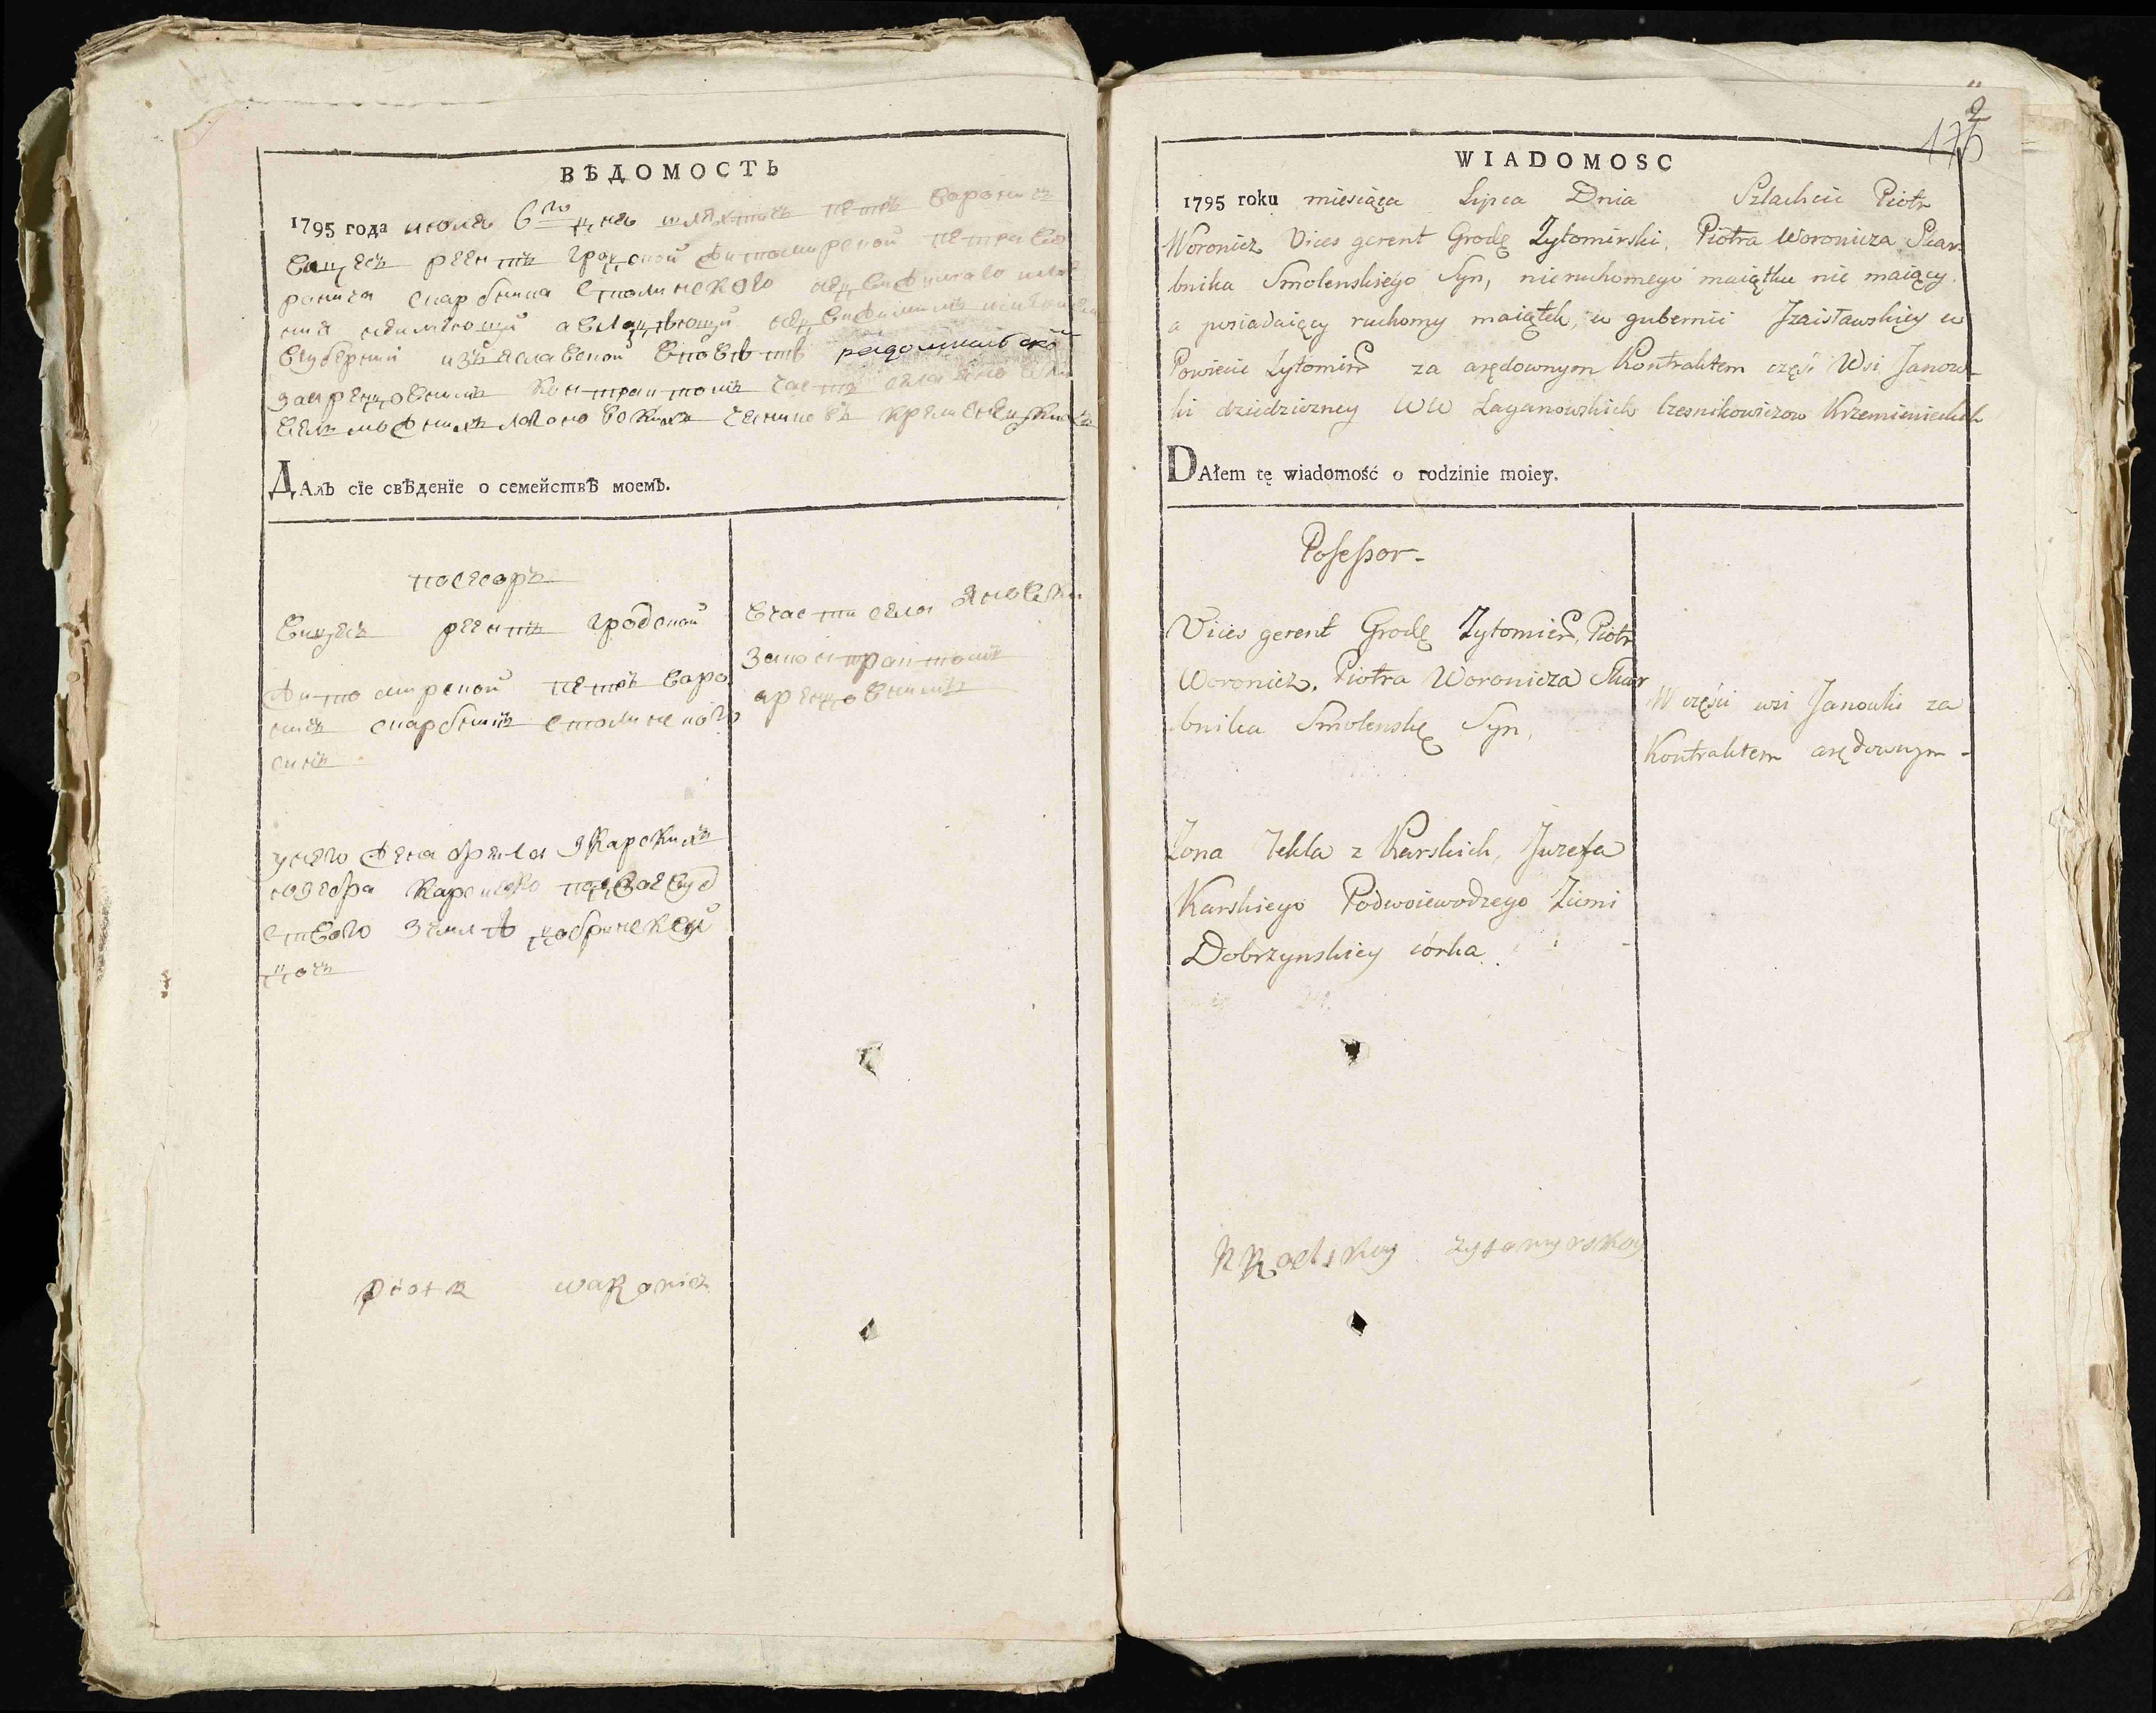 ВѢДОМОСТЬ
1795 года июля 6го дня шляхтичъ петръ вароничъ
вицесъ реентъ градской житомирской петра во
ронича скарбника смолинского недвижимаго имѣ
ния неимѣющй авладѣющй недвижимимъ имѣнием
вгубернии изъяславской вповѣтѣ радомишльской
заарендовнимъ контрактомъ часть села яно
Далъ сїе свѣденїе о семействѣ моемъ.
посесоръ
вицесъ реентъ гродской
житомирской петръ варо
ничъ скарбникъ смолинского
синъ
унего жена фекла Карскихъ
юзефа Карского подваевуд
ства земли добринской
дочъ
вчасти села Яновки
законтрактомъ
арендовнимъ
piotr waRonicz
2
176
WIADOMOSC
1795 roku miesiąca Lipca Dnia Szlachcic Piotr
Woronicz Vices gerent Grodz Zytomirski, Piotra Woronicza Skar
bnika Smolenskiego Syn, nieruchomego maiątku nie maiący.
a posiadaiący ruchomy maiątek, w gubernii Jzaisławskiey w
Powiecie Zytomir za arędownym Kontraktem część Wsi Janow
ki dziedziczney WW Łaganowskich Czesnikowiczow Krzemienieckich
DAłem tę wiadomość o rodzinie moiey.
Possessor
Vices gerent Grodz Zytomier, Piotr
Woronicz, Piotra Woronicza Skar
bnika Smolenskę Syn,
W części wsi Janowki za
Kontraktem arędownym -
Zona Tekla z Karskich, Juzefa
Karskiego Podwoiewodzego Ziemi
Dobrzynskiey córka.
zytomyrskoy